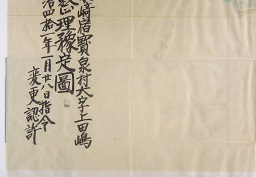 崎居寳泉村大字上田嶋
整理豫定圖
治四拾一年一月廿八日指令
変更認許